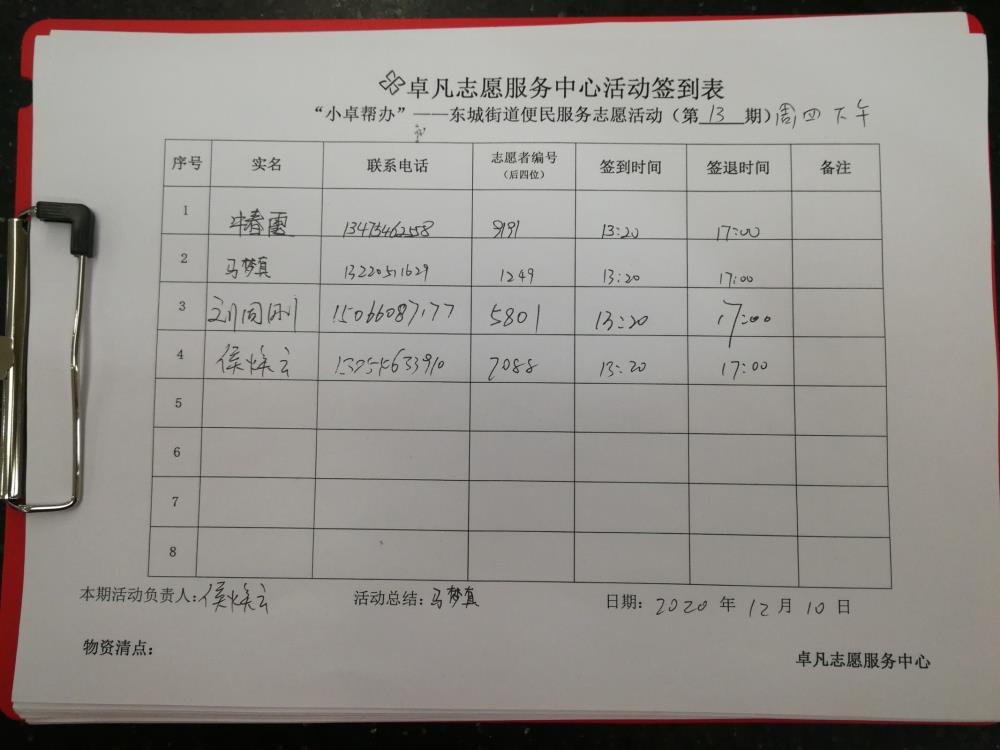 卓凡志愿服务中心活动签到表
“小卓帮办”——东城街道便民服务志愿活动（第 13 期）周四下午
序号 实名 联系电话 志愿者编号（后四位） 签到时间 签退时间 备注
1 牛春霞 13473462558 9191 13:20 17:00
2 马梦真 13220511629 1249 13:20 17:00
3 刘同刚 15066087177 5801 13:20 17:00
4 侯焕云 13254633910 7088 13:20 17:00
5
6
7
8
本期活动负责人:侯焕云 活动总结:马梦真 日期: 2020 年 12 月 10 日
物资清点：
卓凡志愿服务中心